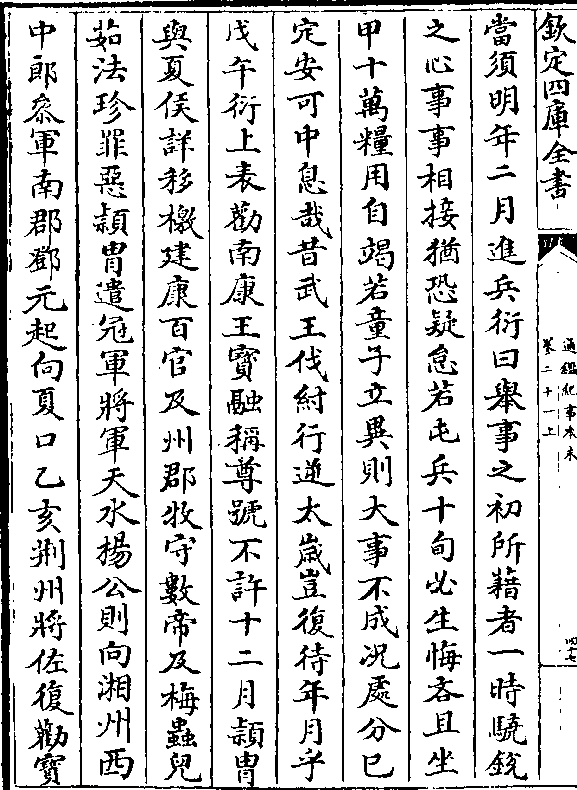 欽定四庫全書
通鑑紀事本末
卷二十一上
四十七
當須明年二月進兵衍曰舉事之初所藉者一時驍銳
之心事事相接猶恐疑怠若屯兵十旬必生悔吝且坐
甲十萬糧用自竭若童子立異則大事不成况處分已
定安可中息哉昔武王伐紂行逆太歲豈復待年月乎
戊午衍上表勸南康王寶融稱尊號不許十二月頴胄
與夏侯詳移檄建康百官及州郡牧守數帝及梅蟲兒
茹法珍罪惡頴胄遣冠軍將軍天水楊公則向湘州西
中郎叅軍南郡鄧元起向夏口乙亥荆州將佐復勸寶